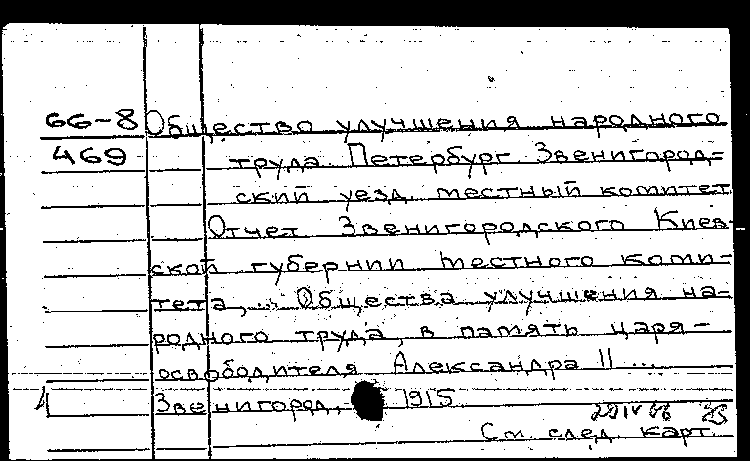 66-8 Общество улучшения народного
469 труда. Петербург. Звенигород=
ский уезд. местный комитет
Отчет Звенигородского Киев-
ской губернии местного коми-
тета,... Общества улучшения на-
родного труда, в память царя-
освободителя Александра II ...
Звенигород, 1915
См. след. карт.